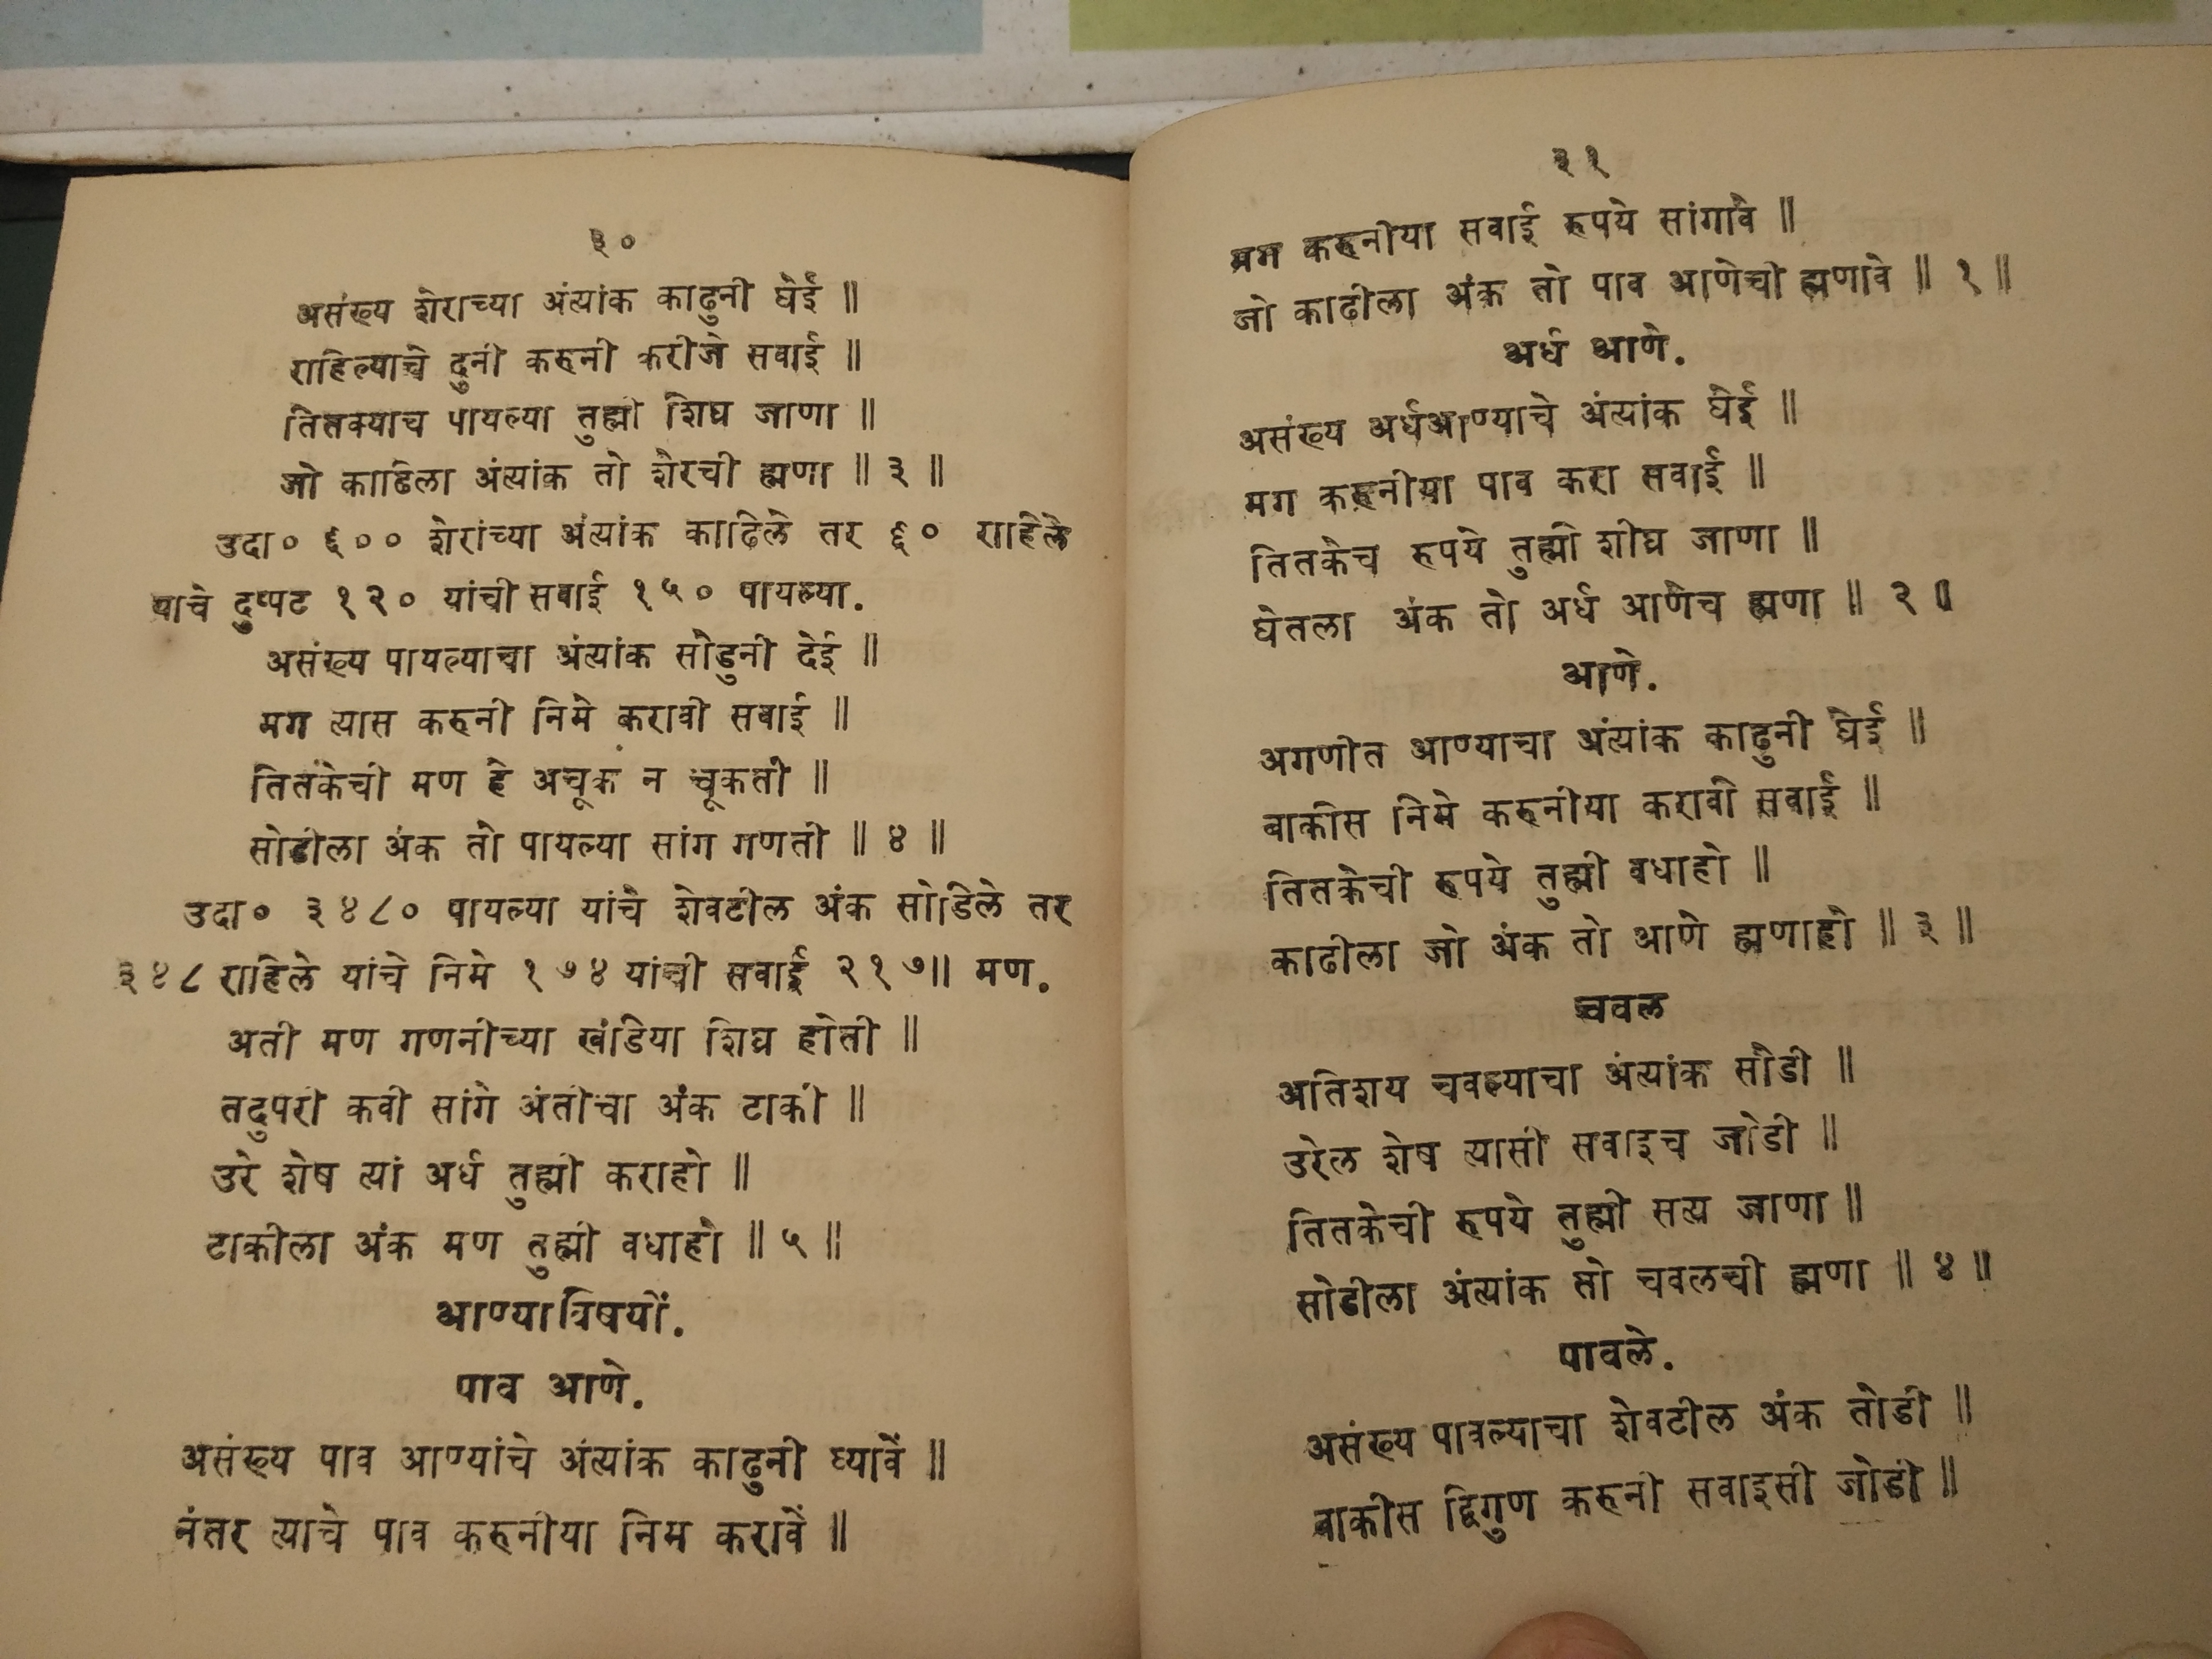 ३०
असंख्य शेराच्या अंत्यांक काढुनी घेई ॥
राहिल्याचे दुनी करुनी करीजे सवाई ॥
तितक्याच पायल्या तुह्मी शिघ्र जाणा ॥
जो काढिला अंत्यांक तो शेरची ह्मणा ॥ ३ ॥
उदा० ६०० शेरांच्या अंत्यांक काढिले तर ६० राहिले
याचे दुप्पट १२० यांची सवाई १५० पायल्या.
असंख्य पायल्याचा अंत्यांक सोडुनी देई ॥
मग त्यास करुनी निमे करावी सवाई ॥
तितकेची मण हे अचूक न चूकती ॥
सोडीला अंक तो पायल्या सांग गणती ॥ ४ ॥
उदा० ३४८० पायल्या यांचे शेवटील अंक सोडिले तर
३४८ राहिले यांचे निमे १७४ यांची सवाई २१७॥ मण.
अती मण गणनीच्या खंडिया शिघ्र होती ॥
तदुपरी कवी सांगे अंतीचा अंक टाकी ॥
उरे शेष त्यां अर्ध तुह्मी कराहो ॥
टाकीला अंक मण तुह्मी वधाहो ॥ ५ ॥
आण्याविषयीं.
पाव आणे.
असंख्य पाव आण्यांचे अंत्यांक काढुनी घ्यावें ॥
नंतर त्याचे पाव करुनीया निम करावें ॥
३१
मग करुनीया सवाई रुपये सांगावे ॥
जो काढीला अंक तो पाव आणेची ह्मणावे ॥ १ ॥
अर्ध आणे.
असंख्य अर्धआण्याचे अंत्यांक घेई ॥
मग करुनीया पाव करा सवाई ॥
तितकेच रुपये तुह्मी शीघ्र जाणा ॥
घेतला अंक तो अर्ध आणेच ह्मणा ॥ २ ॥
आणे.
अगणीत आण्याचा अंत्यांक काढुनी घेई ॥
बाकीस निमे करुनीया करावी सवाई ॥
तितकेची रुपये तुह्मी वधाहो ॥
काढीला जो अंक तो आणे ह्मणाहो ॥ ३ ॥
चवल
अतिशय चवल्याचा अंत्यांक सोडी ॥
उरेल शेष त्यासी सवाइच जोडी ॥
तितकेची रुपये तुह्मी सत्य जाणा ॥
सोडीला अंत्यांक तो चवलची ह्मणा ॥ ४ ॥
पावले.
असंख्य पावल्याचा शेवटील अंक तोडी ॥
बाकीस द्विगुण करुनी सवाइसी जोडी ॥